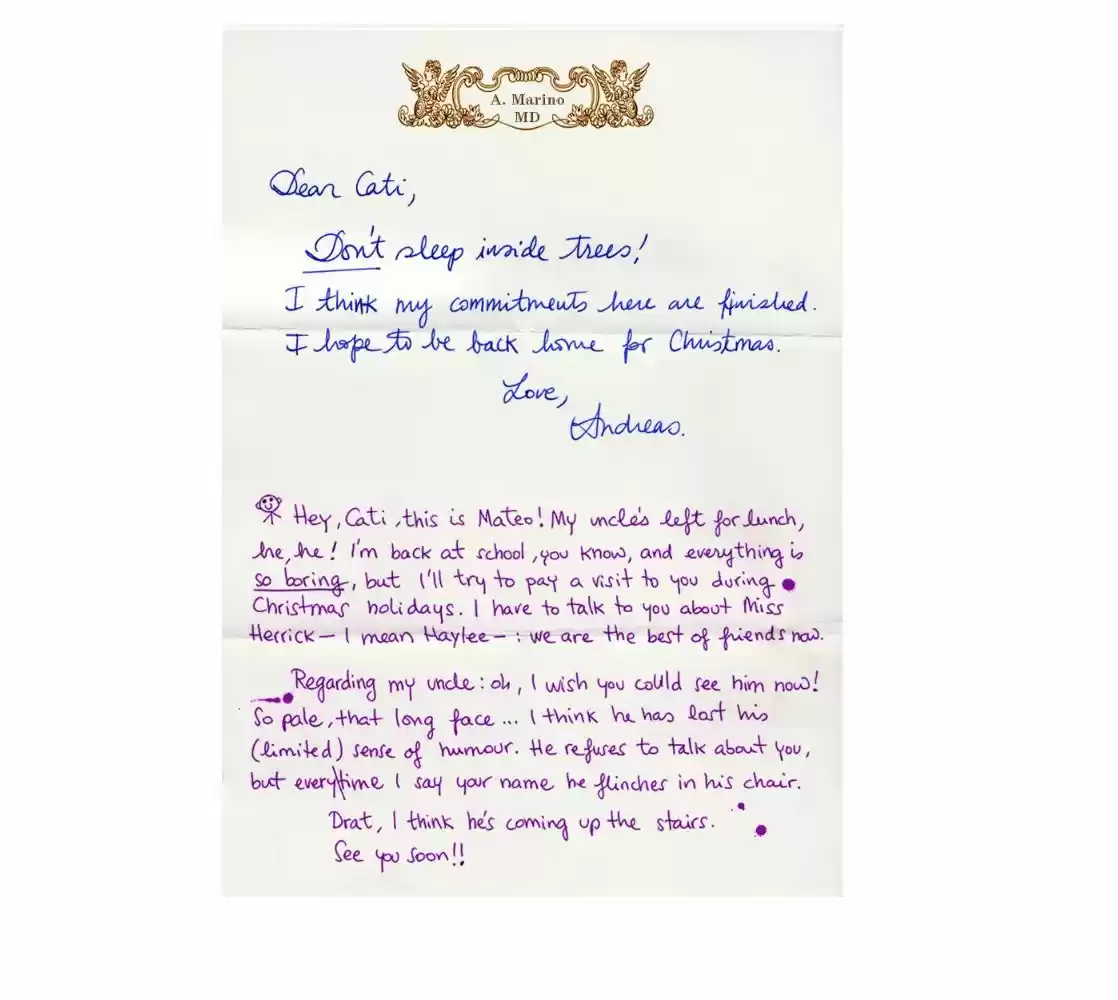 A. Marino
MD
Dear Cati,
Don't sleep inside trees!
I think my commitments here are finished.
I hope to be back home for Christmas.
Love,
Andreas.
Hey, Cati, this is Mateo! My uncle's left for lunch,
he, he! I'm back at school, you know, and everything is
so boring, but I'll try to pay a visit to you during
Christmas holidays. I have to talk to you about Miss
Herrick — I mean Haylee — : we are the best of friends now.
Regarding my uncle: oh, I wish you could see him now!
So pale, that long face ... I think he has lost his
(limited) sense of humour. He refuses to talk about you,
but every time I say your name he flinches in his chair.
Drat, I think he's coming up the stairs.
See you soon!!